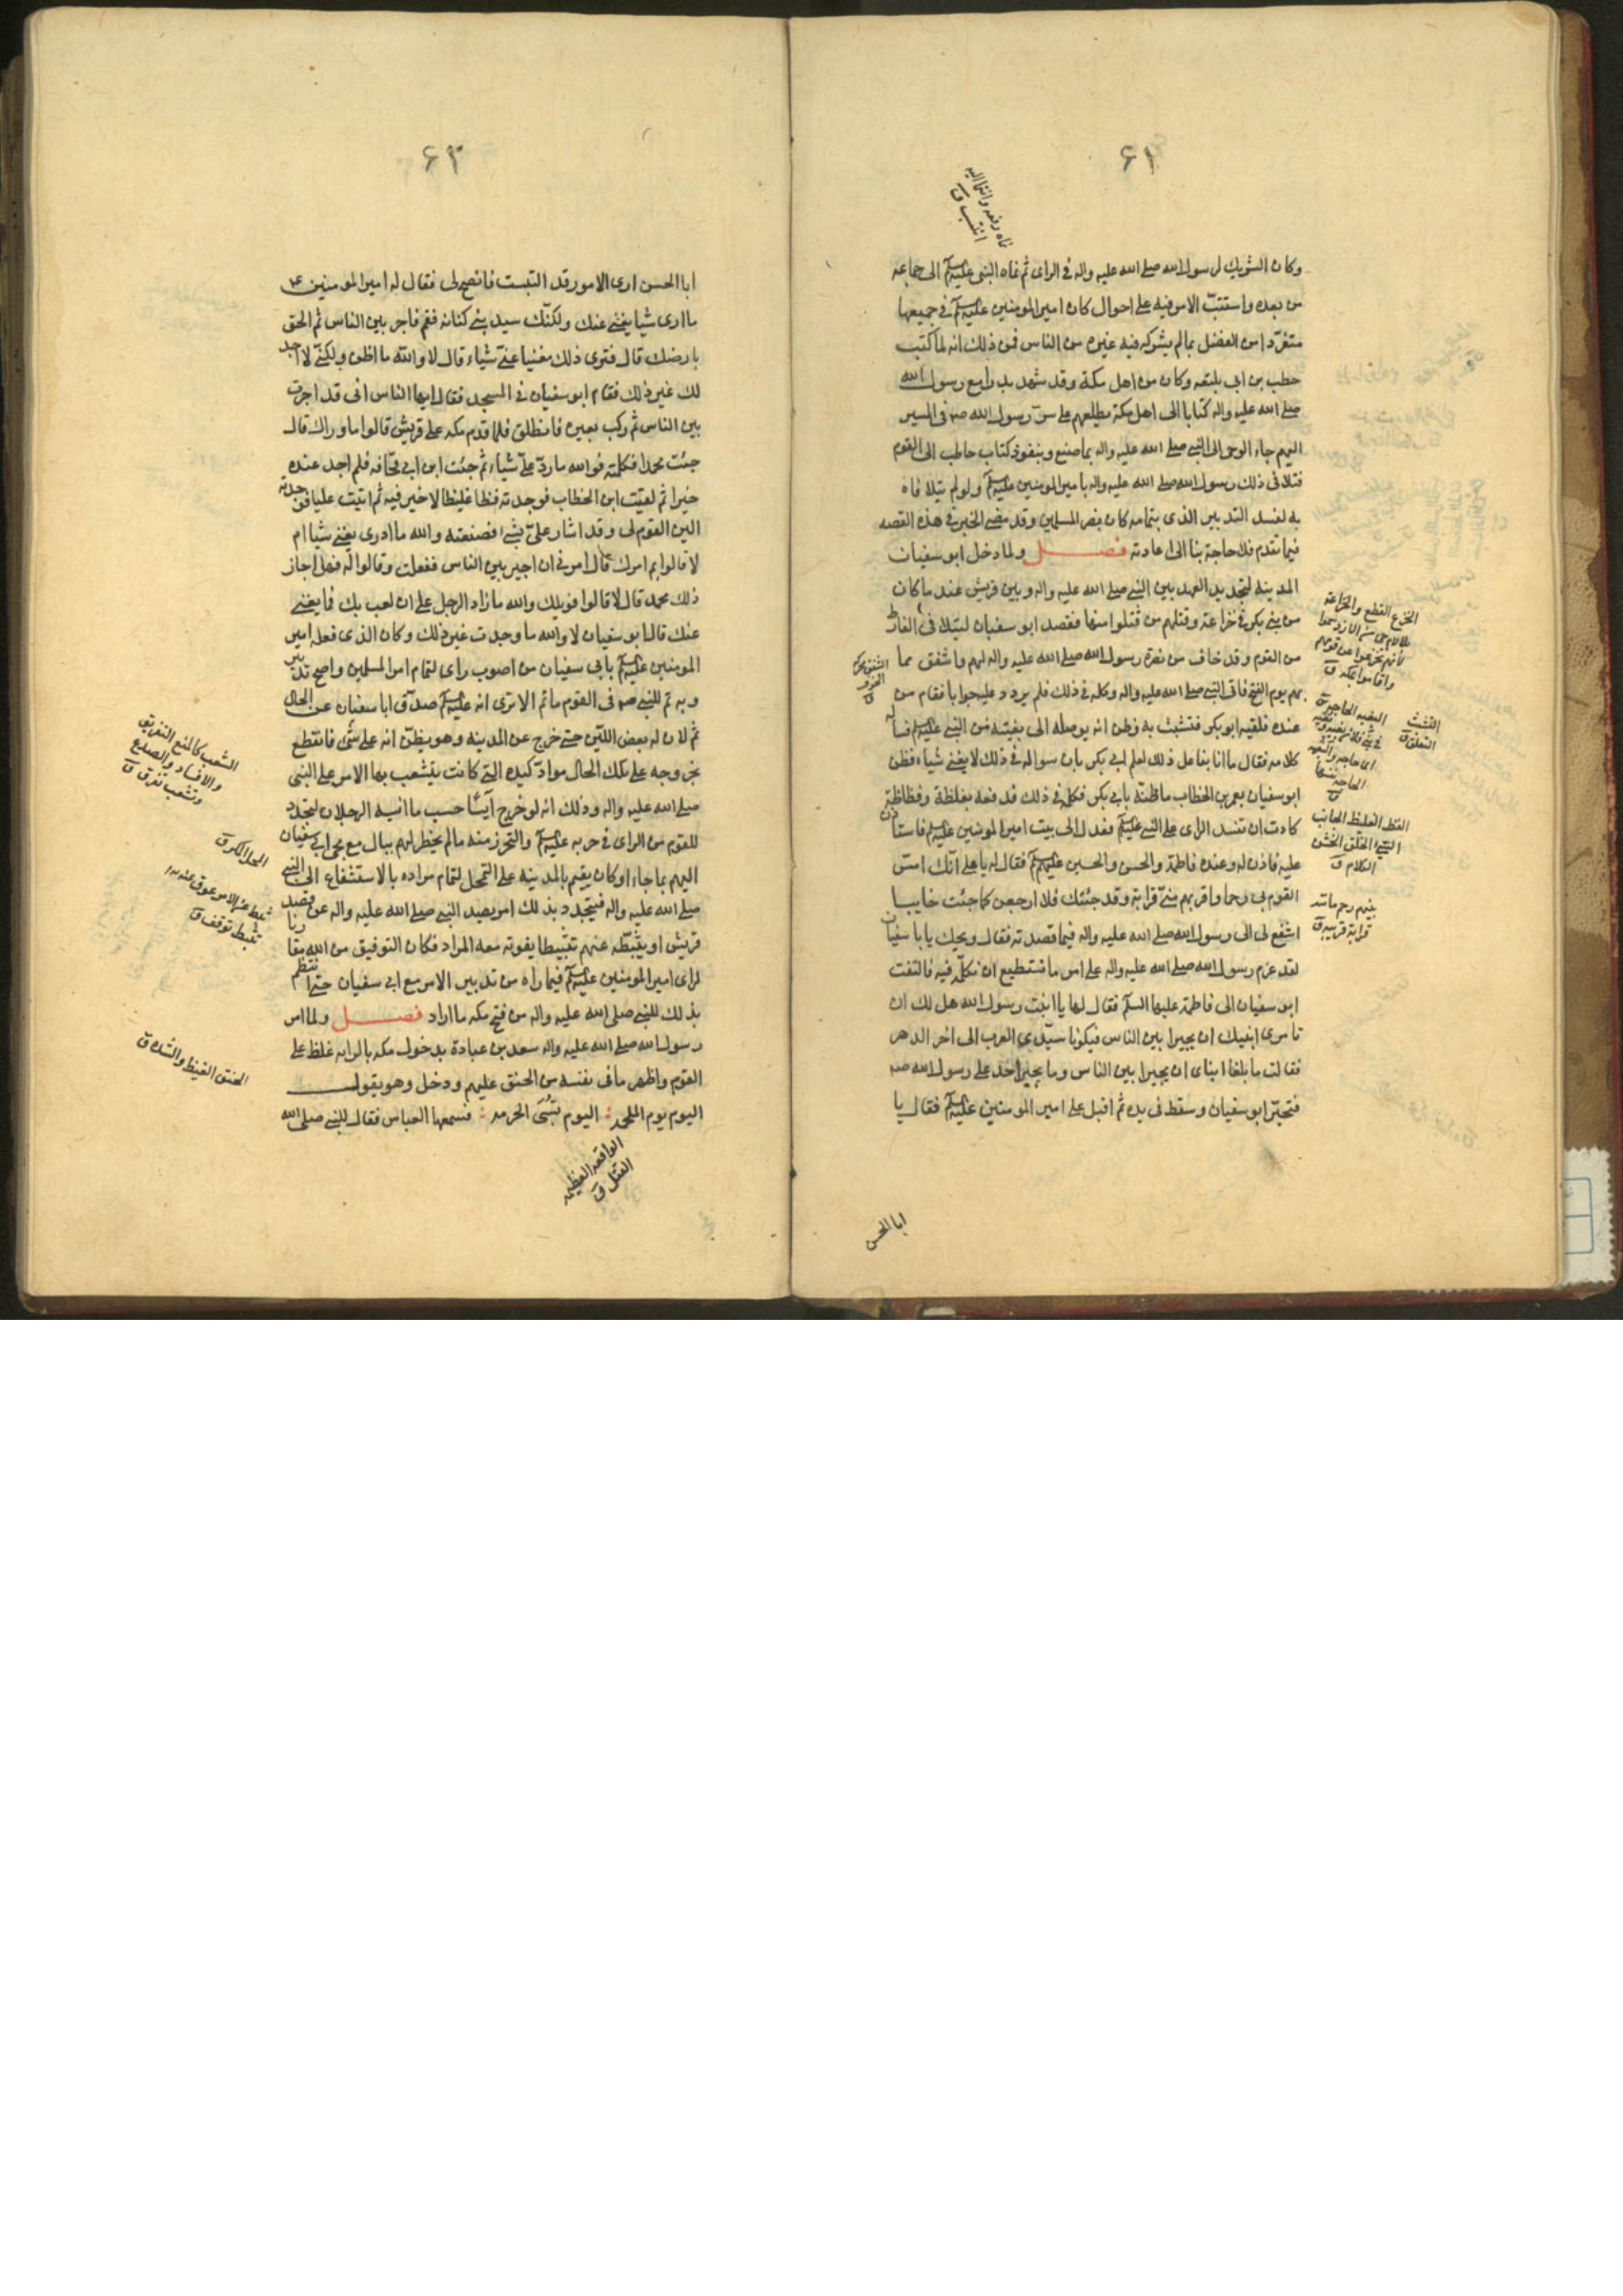 ۶۲
نماه رفعه وانتما اليه
انتسب ق
وكان الشريك لرسول الله صلى الله عليه واله في الراى ثم نماه النبى عليه السلم الى جماعه
من بعده واستتب الامر فيه على احوال كان امير المومنين عليه السلم في جميعها
متفرّدا من الفضل بما لم يشركه فيه غيره من الناس فمن ذلك انه لما كتب
حطب بن ابى بلتعه وكان من اهل مكة وقد شهد بدرا مع رسول الله
صلى الله عليه واله كتابا الى اهل مكة يطلعهم على سرّ رسول الله صه فى المسير
اليهم جاء الوحى الى النبي صلى الله عليه واله بما صنع وبنفوذ كتاب حاطب الى القوم
فتلافى ذلك رسول الله صلى الله عليه واله بامير المومنين عليه السلم ولو لم يتلافاه
به لفسد التدبير الذى بتمامه كان نصر المسلمين وقد مضى الخبر في هذه القصه
فيما تقدم فلا حاجة بنا الى اعادته فصل ولما دخل ابو سفيان
المدينة لتجديد العهد بين النبي صلى الله عليه واله وبين قريش عند ما كان
من بني بكر في خزاعة وقتلهم من قتلوا منها فقصد ابو سفيان ليتلافى الفارط
من القوم وقد خاف من نصرة رسول الله صلى الله عليه واله لهم واشفق مما
بهم يوم الفتح فاتى النبي صلى الله عليه واله وكلمه في ذلك فلم يردد عليه جوابا فقام من
عنده فلقيه ابو بكر فتشبث به وظن انه يوصله الى بغيته من النبي عليه السلم فساله
كلامه فقال ما انا بفاعل ذلك لعلم ابي بكر بان سواله في ذلك لا يغني شياء فظن
ابو سفيان بعمر بن الخطاب ما ظنه بابي بكر فكلمه في ذلك فدفعه بغلظة وفظاظة
كادت ان تفسد الراى على النبي عليه السلم فعدل الى بيت امير المومنين عليه السلم فاستاذن
عليه فاذن له وعنده فاطمة والحسن والحسين عليهم السلم فقال له يا على انّك امسّ
القوم بى رحما واقربهم منّي قرابة وقد جئتك فلا ارجعن كما جئت خايبا
اشفع لى الى رسول الله صلى الله عليه واله فيما قصدته فقال ويحك يابا سفيان
لقد عزم رسول الله صلى الله عليه واله على امر ما نستطيع ان نكلّمه فيه فالتفت
ابو سفيان الى فاطمة عليها السلم فقال لها يا ابنت رسول الله هل لك ان
تامرى ابنيك ان يجيرا بين الناس فيكونا سيّدي العرب الى اخر الدهر
فقالت ما بلغا ابناى ان يجيرا بين الناس وما يجير احد على رسول الله صه
فتحيّر ابو سفيان وسقط فى يده ثم اقبل على امير المومنين عليه السلم فقال يا
ابا الحسن
الخزع القطع والخزاعة
لانهم تخزعوا من قومهم
واقاموا بمكة ق
الشفق محركة
الخوف
ق
التشبث
التعلق ق
البغيه الحاجه ق
الفظ الغليظ الجانب
السيّئ الخلق الخشن
الكلام ق
بينهم رحم ماسّة
قرابة قريبة ق
۶۳
ابا الحسن ارى الامور قد التبست فانصح لى فقال له امير المومنين عه
ما ارى شيا يغني عنك ولكنّك سيد بني كنانه فقم فاجر بين الناس ثم الحق
بارضك قال فترى ذلك مغنيا عنّي شياء قال لا والله ما اظن ولكنّي لا اجد
لك غير ذلك فقام ابو سفيان في المسجد فقال ايها الناس انى قد اجرت
بين الناس ثم ركب بعيره فانطلق فلما قدم مكه على قريش قالوا ما وراك قال
جئت محمدا فكلمته فوالله ما ردّ علىّ شياء ثم جئت ابن ابي قحافه فلم اجد عنده
خيرا ثم لقيت ابن الخطاب فوجدته فظا غليظا لا خير فيه ثم اتيت عليا فوجدته
الين القوم لى وقد اشار علىّ بشيء فصنعته والله ما ادرى يغني شيا ام
لا قالوا بم امرك قال امرنى ان اجير بين الناس ففعلت وقالوا له فهل اجاز
ذلك محمد قال لا قالوا فويلك والله ما زاد الرجل على ان لعب بك فما يغني
عنك قال ابو سفيان لا والله ما وجدت غير ذلك وكان الذى فعله امير
المومنين عليه السلم بابى سفيان من اصوب راى لتمام امر المسلمين واصح تدبير
وبه تم للنبي صه فى القوم ما تم الا ترى انه عليه السلم صدّق ابا سفيان عن الحال
ثم لان له بعض اللّين حتى خرج عن المدينه وهو يظنّ انه على شئ فانقطع
بخروجه على تلك الحال موادّ كيده التي كانت يتشعب بها الامر على النبى
صلى الله عليه واله وذلك انه لو خرج آيسًا حسب ما ايسه الرجلان لتجدد
للقوم من الراى في حربه عليه السلم والتحرز منه ما لم يخطر لهم ببال مع مجى ابى سفيان
اليهم بما جاء او كان يقيم بالمدينه على التمحل لتمام مراده بالاستشفاع الى النبي
صلى الله عليه واله فيتجدد بذلك امر يصد النبي صلى الله عليه واله عن قصد
قريش او يثبّطه عنهم تثبيطا يفوته معه المراد فكان التوفيق من الله مقارنا
لراى امير المومنين عليه السلم فيما راه من تدبير الامر مع ابى سفيان حتى انتظم
بذلك للنبي صلى الله عليه واله من فتح مكه ما اراد فصل ولما امر
رسول الله صلى الله عليه واله سعد بن عبادة بدخول مكه بالرايه غلظ على
القوم واظهر ما فى نفسه من الحنق عليهم ودخل وهو يقول
اليوم يوم الملحمه : اليوم تُسْبَى الحرمه : فسمعها العباس فقال للنبي صلى الله
الواقعه العظيمه
القتل ق
الشعب كالمنع التفريق
والافساد والصدع
وتشعب تفرق ق
المحل المكر ق
ثبطه عن الامر عوقه
تثبط توقف ق
الحنق الغيظ والشده ق